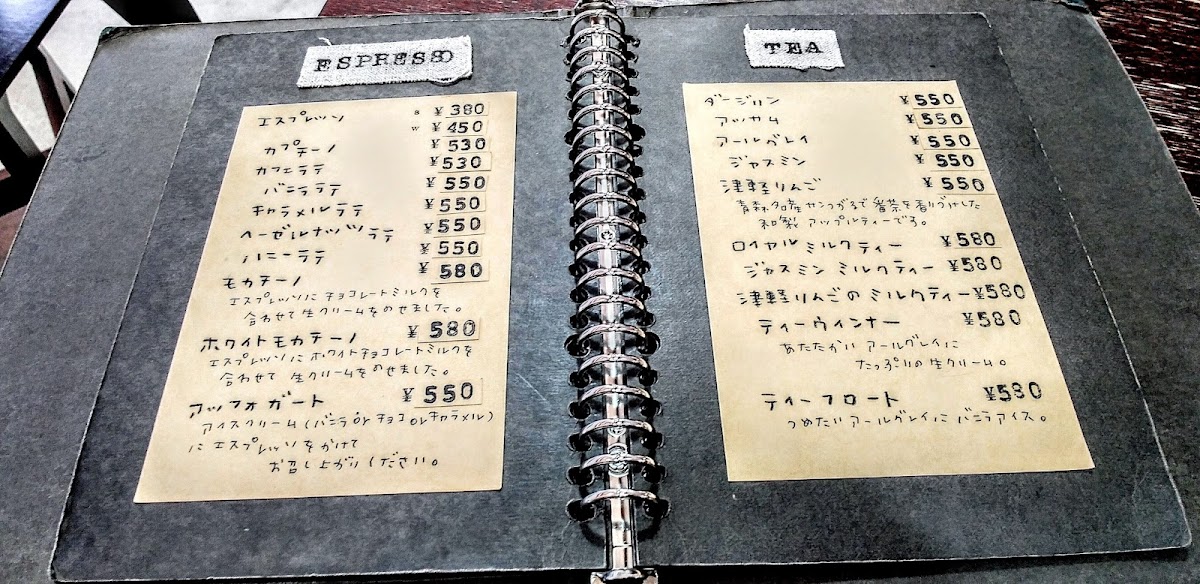 ESPRESSO
エスプレッソ s ¥380
w ¥450
カプチーノ ¥530
カフェラテ ¥530
バニララテ ¥550
キャラメルラテ ¥550
ヘーゼルナッツラテ ¥550
ハニーラテ ¥550
モカチーノ ¥580
エスプレッソにチョコレートミルクを
合わせて生クリームをのせました。
ホワイトモカチーノ ¥580
エスプレッソにホワイトチョコレートミルクを
合わせて生クリームをのせました。
アッフォガート ¥550
アイスクリーム(バニラ or チョコ or キャラメル)
にエスプレッソをかけて
お召し上がりください。
TEA
ダージリン ¥550
アッサム ¥550
アールグレイ ¥550
ジャスミン ¥550
津軽りんご ¥550
青森名産サンつがるで番茶を香りづけした
和製アップルティーです。
ロイヤルミルクティー ¥580
ジャスミンミルクティー ¥580
津軽りんごのミルクティー ¥580
ティーウィンナー ¥580
あたたかいアールグレイに
たっぷりの生クリーム。
ティーフロート ¥580
つめたいアールグレイにバニラアイス。